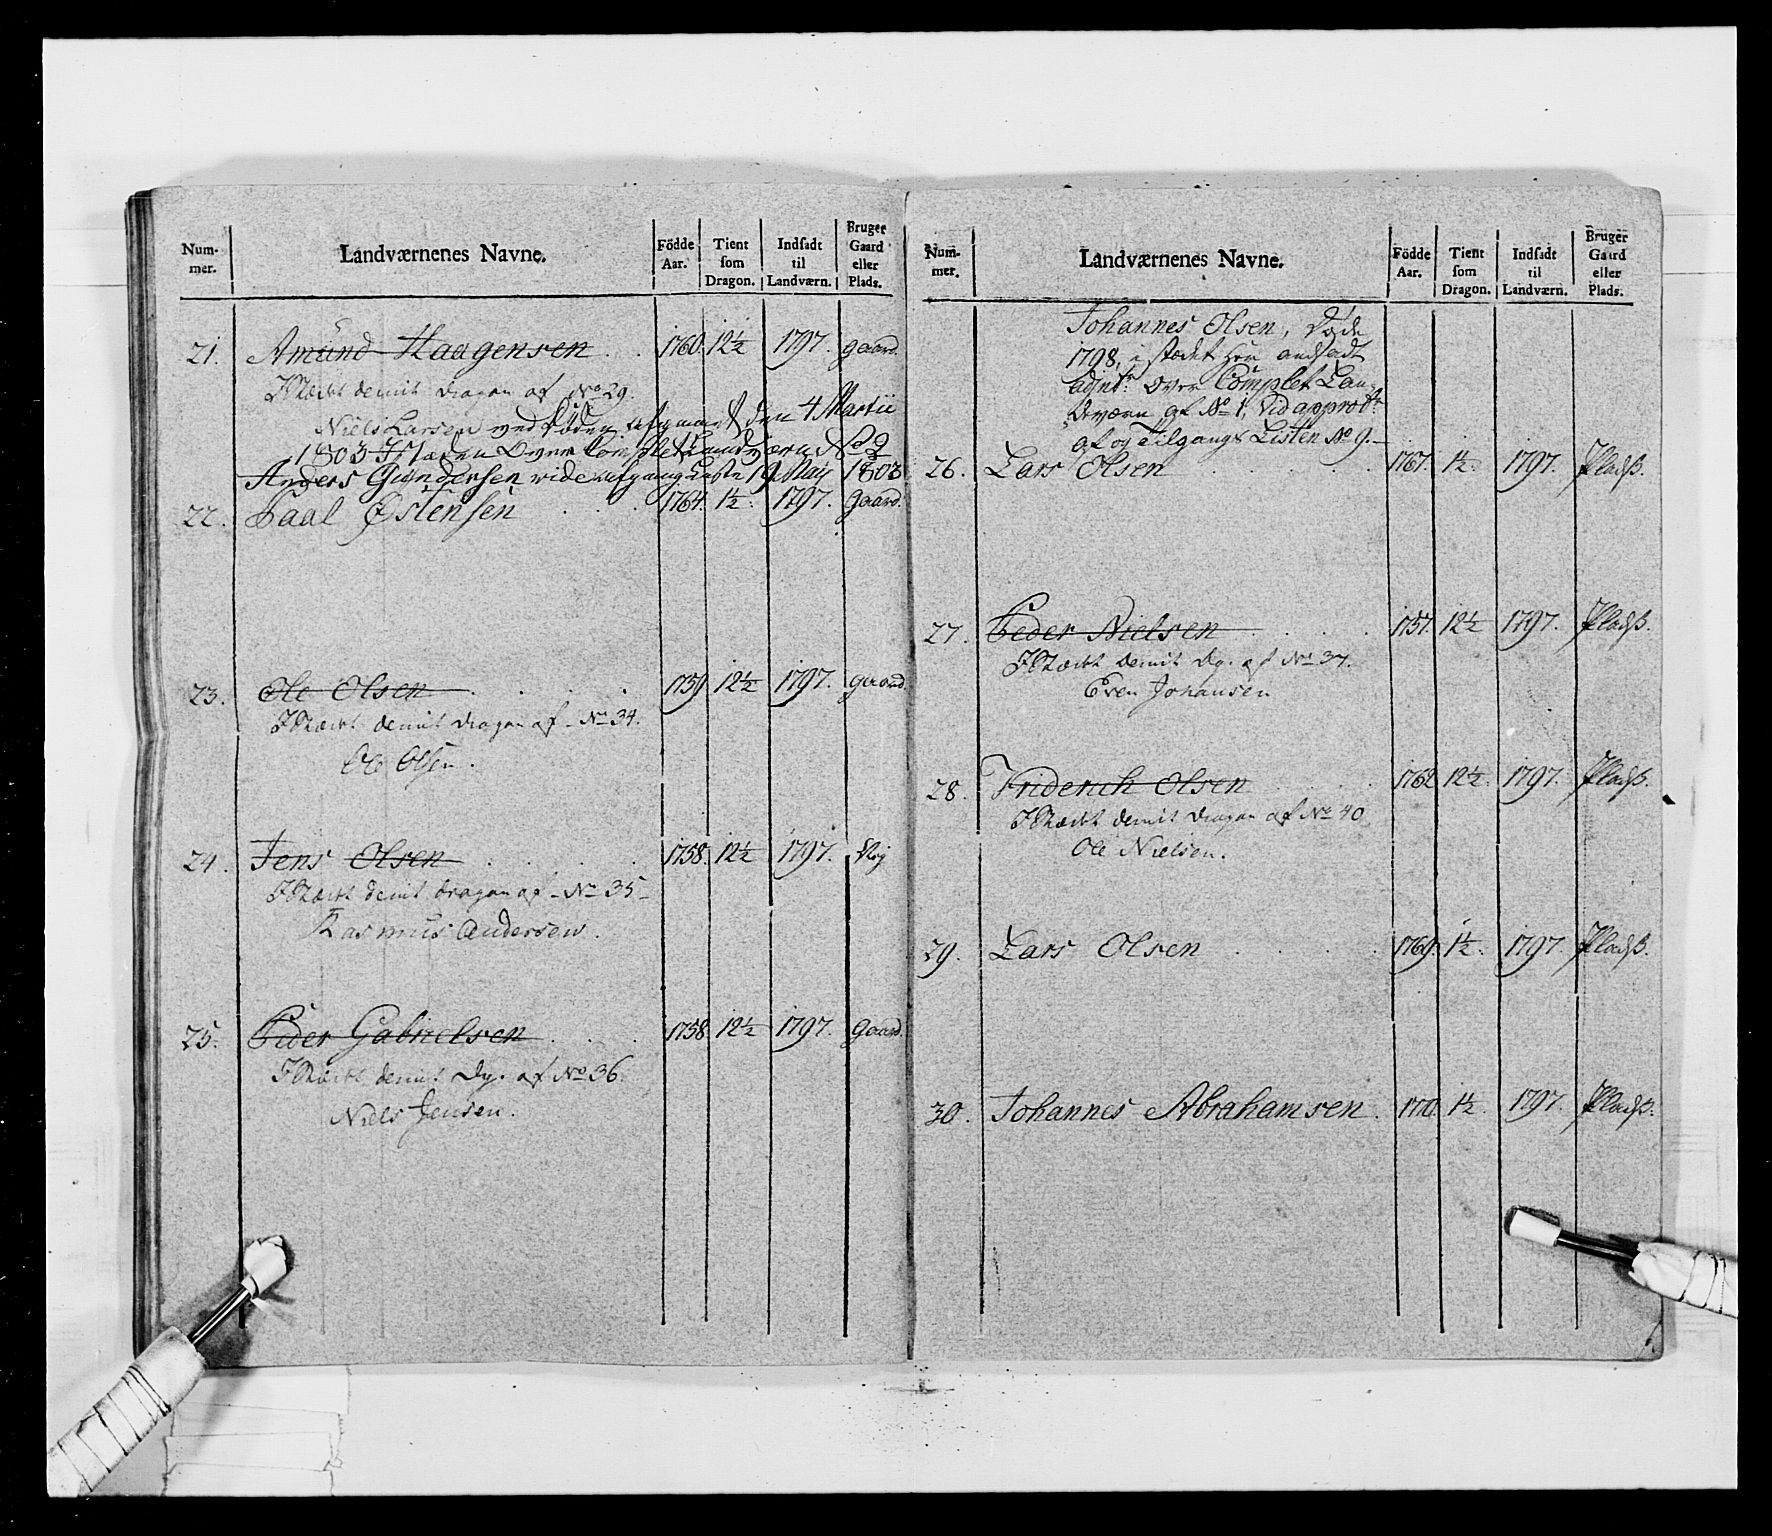 Num-mer. Landværnenes Navne. Födde Aar. Tient som Dragon. Indsadt til Landværn. Bruger Gaard eller Plads.
21. Amünd Haagensen . . 1760. 12½ 1797. gaard.
I Stædet demit Dragon af No 29.
Niels Larsen ved Döden afgaaet den 4 Martii
1803 I Stæden Over Complet Landværn No 2
Anders Gundersen vide afgangs Liste 19 Maij 1803
22. Paal Østensen . . . 1764. 1½. 1797. Gaard.
23. Ole Olsen . . . . 1759 12½ 1797. gaard
I Stædet demit Dragon af No 34.
Ole Olsen.
24. Jens Olsen . . . . 1758. 12½ 1797. Nej
I Stædet demit Dragon af No 35
Rasmus Andersen.
25. Peder Gabrielsen . . . 1758. 12½ 1797. Gaard.
I Stædet demit Dg. af No 36.
Niels Jensen.
Num-mer. Landværnenes Navne. Födde Aar. Tient som Dragon. Indsadt til Landværn. Bruger Gaard eller Plads.
Johannes Olsen, Døde
1798, i stædet Her andsadt
Over Complet Lan-
dværn af No 1, Vid
af og Tilgangs Listen No 9.
26. Lars Olsen . . . . 1767. 1½. 1797. Pladß.
27. Peder Nielsen . . . . 1757. 12½ 1797. Pladß.
I Stædet demit Dg. af No 37.
Even Johansen
28. Friderich Olsen . . . 1762 12½. 1797. Pladß.
I Stædet demit Dragon af No 40
Ole Nielsen.
29. Lars Olsen . . . . 1769. 1½. 1797. Pladß.
30. Johannes Abrahamsen . 1770. 1½. 1797. Pladß.